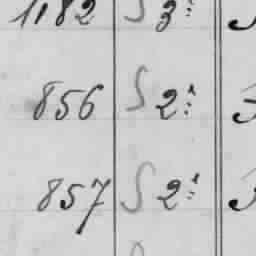 1182 S 3:
856 S 2:
857 S 2: